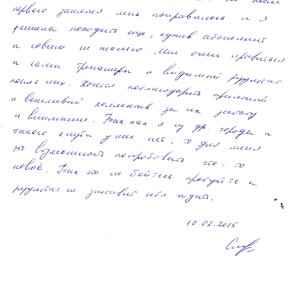 первого занятия мне понравилось и я
решила походить еще, купив абонемент
и совсем не жалею. Мне очень нравится
и сами тренажеры и видимый результат
после них. Хочется поблагодарить приятный
и вежливый коллектив за их работу
и внимание. Так как я из др. города и
такого клуба у нас нет, то для меня
это возможность попробовать что-то
новое. Так что не бойтесь пробуйте и
результат не заставит себя ждать.
10.02.2015